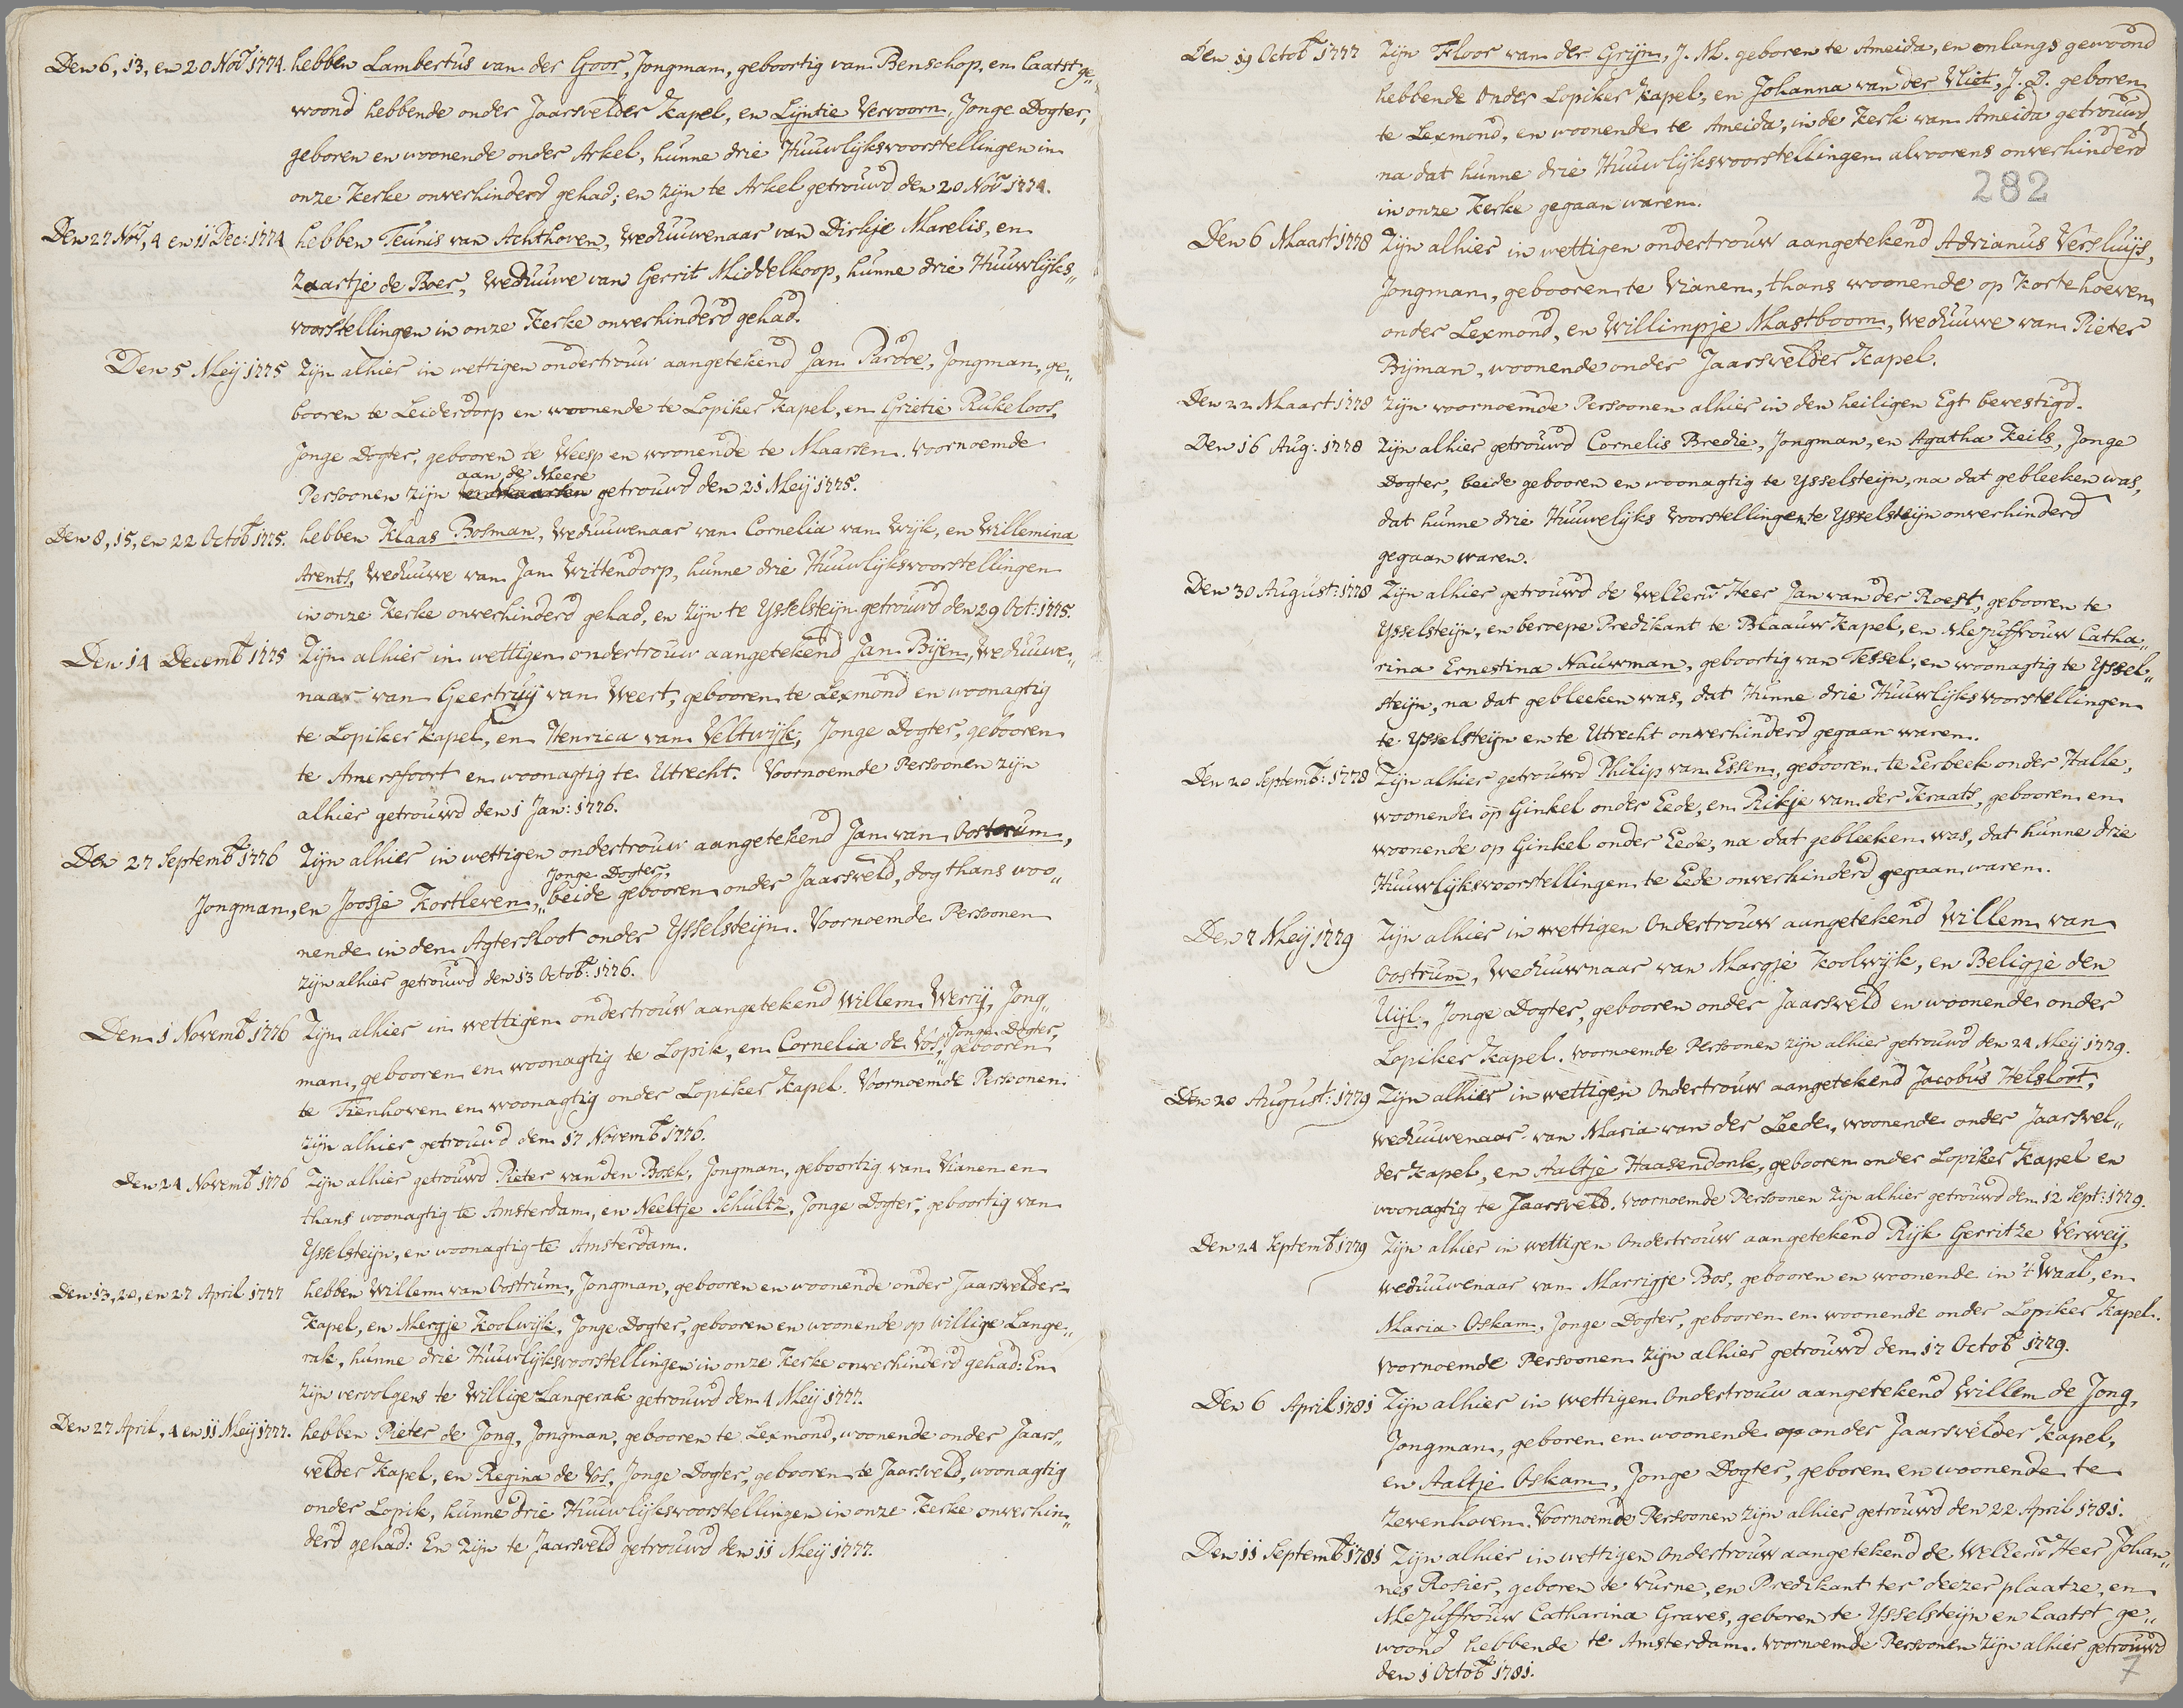 Den 6, 13, en 20 Nov 1774. hebben Lambertus van der Goor, Jongman, geboortig van Benschop, en laatst ge„
woond hebbende onder Jaarsvelder Kapel, en Lijntie Vervoorn, Jonge Dogter,
geboren en woonende onder Arkel, hunne drie Huuwlijksvoorstellingen in
onze Kerke onverhinderd gehad; en zijn te Arkel getrouwd den 20 Nov 1774.
Den 27 Nov, 4 en 11 Dec: 1774 hebben Teunis van Achthoven, Weduuwenaar van Dirkje Marelis, en
Zaartje de Boer, Weduuwe van Gerrit Middelkoop, hunne drie Huuwlijks„
voorstellingen in onze Kerke onverhinderd gehad.
Den 5 Meij 1775 Zijn alhier in wettigen ondertrouw aangetekend Jan Pardoe, Jongman, ge„
booren te Leiderdorp en woonende te Lopiker Kapel, en Grietie Rukeloos,
Jonge Dogter, gebooren te Weesp en woonende te Maarsen. Voornoemde
aan de Meere
Persoonen zijn getrouwd den 21 Meij 1775.
Den 8, 15, en 22 Octob 1775. hebben Klaas Bosman, Weduuwenaar van Cornelia van Wijk, en Willemina
Arents, Weduuwe van Jan Wittendorp, hunne drie Huuwlijksvoorstellingen
in onze Kerke onverhinderd gehad, en zijn te Ysselsteijn getrouwd den 29 Oct: 1775.
Den 14 Decemb 1775 Zijn alhier in wettigen ondertrouw aangetekend Jan Bijen, Weduuwe„
naar van Geertruij van Weert, gebooren te Lexmond en woonagtig
te Lopiker Kapel, en Henrica van Veltwijk, Jonge Dogter, gebooren
te Amersfoort en woonagtig te Utrecht. Voornoemde Persoonen zijn
alhier getrouwd den 1 Jan: 1776.
Den 27 Septemb 1776 Zijn alhier in wettigen ondertrouw aangetekend Jan van Oostrum,
Jonge Dogter,
Jongman, en Joosje Kortleven, beide gebooren onder Jaarsveld, dog thans woo„
nende in den Agtersloot onder Ysselsteijn. Voornoemde Persoonen
zijn alhier getrouwd den 13 Octob: 1776.
Den 1 Novemb 1776 Zijn alhier in wettigen ondertrouw aangetekend Willem Werrij, Jong„
Jonge Dogter,
man, gebooren en woonagtig te Lopik, en Cornelia de Vos, gebooren
te Tienhoven en woonagtig onder Lopiker Kapel. Voornoemde Persoonen
zijn alhier getrouwd den 17 Novemb 1776.
Den 24 Novemb 1776 Zijn alhier getrouwd Pieter van den Bosch, Jongman, geboortig van Vianen en
thans woonagtig te Amsterdam, en Neeltje Schultz, Jonge Dogter, geboortig van
Ysselsteijn, en woonagtig te Amsterdam.
Den 13, 20, en 27 April 1777 hebben Willem van Oostrum, Jongman, gebooren en woonende onder Jaarsvelder
Kapel, en Mergje Koolwijk, Jonge Dogter, gebooren en woonende op Willige Lange„
rak, hunne drie Huuwlijksvoorstellingen in onze Kerke onverhinderd gehad: En
zijn vervolgens te Willige Langerak getrouwd den 4 Meij 1777.
Den 27 April, 4 en 11 Meij 1777. hebben Pieter de Jong, Jongman, gebooren te Lexmond, woonende onder Jaars„
velder Kapel, en Regina de Vos, Jonge Dogter, gebooren te Jaarsveld, woonagtig
onder Lopik, hunne drie Huuwlijksvoorstellingen in onze Kerke onverhin„
derd gehad: En zijn te Jaarsveld getrouwd den 11 Meij 1777.
Den 19 Octob 1777 Zijn Floor van der Grijn, J. M. geboren te Ameida, en onlangs gewoond
hebbende onder Lopiker Kapel, en Johanna van der Vliet, J. D. geboren
te Lexmond, en woonende te Ameida, in de Kerk van Ameida getrouwd,
na dat hunne drie Huuwlijksvoorstellingen alvoorens onverhinderd
in onze Kerke gegaan waren.
282
Den 6 Maart 1778 Zijn alhier in wettigen ondertrouw aangetekend Adrianus Versluijs,
Jongman, gebooren te Vianen, thans woonende op Kortehoeven
onder Lexmond, en Willimpje Mastboom, Weduuwe van Pieter
Bijman, woonende onder Jaarsvelder Kapel.
Den 22 Maart 1778 Zijn voornoemde Persoonen alhier in den heiligen Egt bevestigd.
Den 16 Aug: 1778 Zijn alhier getrouwd Cornelis Bredie, Jongman, en Agatha Keils, Jonge
Dogter, beide gebooren en woonagtig te Ysselsteijn, na dat gebleeken was,
dat hunne drie Huuwelijks Voorstellingen te Ysselsteijn onverhinderd
gegaan waren.
Den 30 August: 1778 Zijn alhier getrouwd de WelEerw Heer Jan van der Roest, gebooren te
Ysselsteijn, en beroepe Predikant te Blaauw Kapel, en Mejuffrouw Catha„
rina Ernestina Nauwman, geboortig van Tessel, en woonagtig te Yssel„
steijn, na dat gebleeken was, dat Hunne drie Huuwlijksvoorstellingen
te Ysselsteijn en te Utrecht onverhinderd gegaan waren.
Den 20 Septemb: 1778 Zijn alhier getrouwd Philip van Essen, gebooren te Eerbeek onder Halle,
woonende op Ginkel onder Eede, en Rikje van der Kraats, gebooren en
woonende op Ginkel onder Eede, na dat gebleeken was, dat hunne drie
Huuwlijksvoorstellingen te Eede onverhinderd gegaan waren.
Den 7 Meij 1779 Zijn alhier in wettigen Ondertrouw aangetekend Willem van
Oostrum, Weduuwnaar van Margje Koolwijk, en Beligje den
Uijl, Jonge Dogter, gebooren onder Jaarsveld en woonende onder
Lopiker Kapel. Voornoemde Persoonen zijn alhier getrouwd den 24 Meij 1779.
Den 20 August: 1779 Zijn alhier in wettigen Ondertrouw aangetekend Jacobus Helsloot,
Weduuwenaar van Maria van der Leede, woonende onder Jaarsvel„
der Kapel, en Aaltje Haasendonk, gebooren onder Lopiker Kapel en
woonagtig te Jaarsveld. Voornoemde Persoonen zijn alhier getrouwd den 12 Sept: 1779.
Den 24 Septemb 1779 Zijn alhier in wettigen Ondertrouw aangetekend Rijk Gerritze Verweij,
Weduuwenaar van Marrigje Bos, gebooren en woonende in 't Waal, en
Maria Oskam, Jonge Dogter, gebooren en woonende onder Lopiker Kapel.
Voornoemde Persoonen zijn alhier getrouwd den 17 Octob 1779.
Den 6 April 1781 Zijn alhier in wettigen Ondertrouw aangetekend Willem de Jong,
Jongman, geboren en woonende op onder Jaarsvelder Kapel,
en Aaltje Oskam, Jonge Dogter, geboren en woonende te
Zevenhoven. Voornoemde Persoonen zijn alhier getrouwd den 22 April 1781.
Den 11 Septemb 1781 Zijn alhier in wettigen Ondertrouw aangetekend de WelEerw Heer Johan„
nes Rosier, geboren te Vurne, en Predikant ter deezer plaatze, en
Mejuffrouw Catharina Graves, geboren te Ysselsteijn en laatst ge„
woond hebbende te Amsterdam. Voornoemde Persoonen zijn alhier getrouwd
den 1 Octob 1781.
7